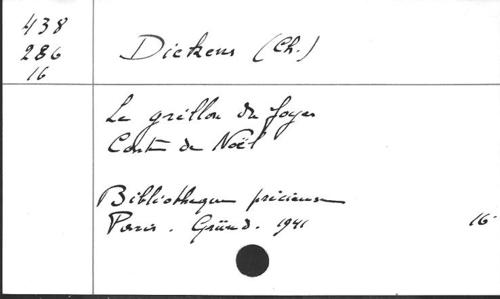 438
286
16
Dickens (Ch.)
Le grillon du foyer
Conte de Noël
Bibliothèque précieuse
Paris. Gründ. 1941 16°